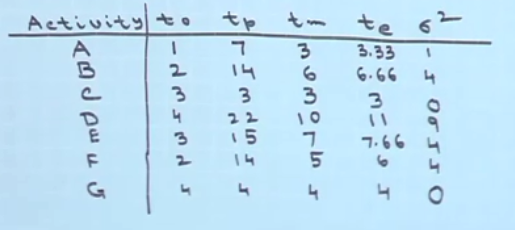 Activity to tp tm te σ²
A 1 7 3 3.33 1
B 2 14 6 6.66 4
C 3 3 3 3 0
D 4 22 10 11 9
E 3 15 7 7.66 4
F 2 14 5 6 4
G 4 4 4 4 0